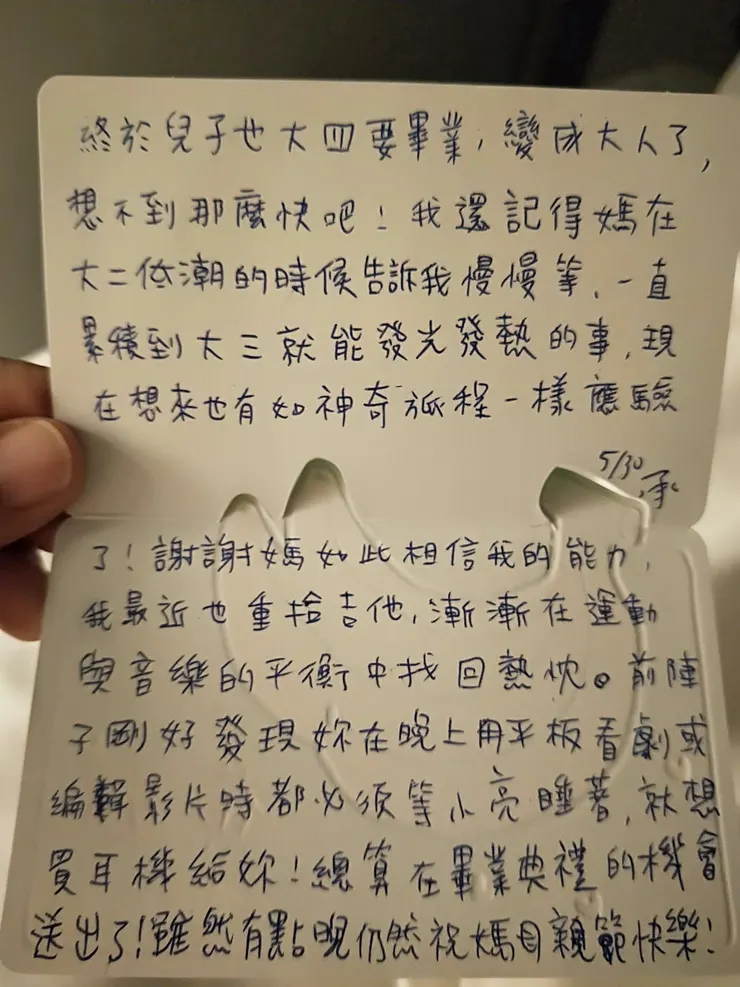 終於兒子也大四要畢業，變成大人了，
想不到那麼快吧！我還記得媽在
大二低潮的時候告訴我慢慢等、一直
累積到大三就能發光發熱的事，現
在想來也有如神奇旅程一樣應驗
5/30 承
了！謝謝媽如此相信我的能力，
我最近也重拾吉他，漸漸在運動
與音樂的平衡中找回熱忱。前陣
子剛好發現妳在晚上用平板看劇或
編輯影片時都必須等小亮睡著，就想
買耳機給妳！總算在畢業典禮的機會
送出了！雖然有點晚仍然祝媽母親節快樂！